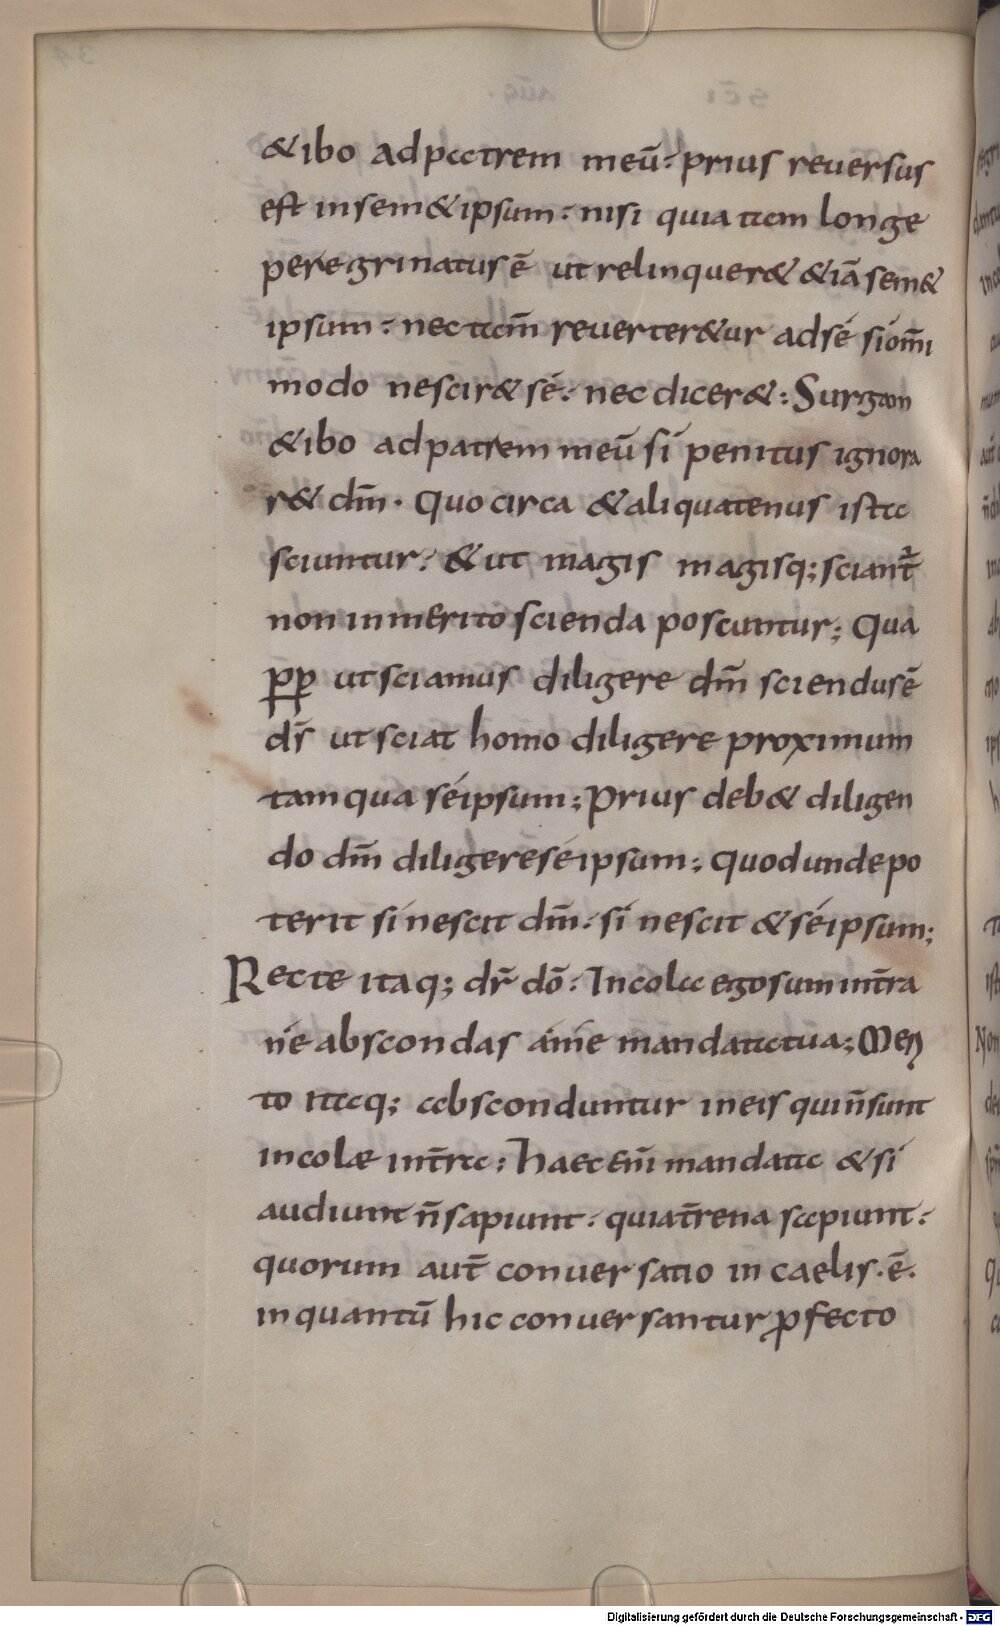 &ibo ad patrem meū· prius reuersus
est insem&ipsum· nisi quia tam longe
peregrinatus ē ut relinquer& &iā sem&
ipsum· nec tam̄ reuerter&ur ad sé si om̄i
modo nescir& sé· nec dicer&: Surgam
&ibo ad patrem meū si penitus ignora
r& dm̄· Quo circa &aliquatenus ista
sciuntur· &ut magis magisq; sciant̄
non inmerito scienda poscuntur; Qua
pp ut sciamus diligere dm̄ sciendus ē
dr̄ ut sciat homo diligere proximum
tamqua séipsum; Prius deb& diligen
do dm̄ diligere séipsum; Quod unde po
terit si nescit dm̄· si nescit &séipsum;
Recte itaq; dr̄ dō: Incola ego sum in t̄ra
né abscondas á mé mandata tua; Meri
to itaq; absconduntur in eis qui n̄ sunt
incolæ in t̄ra; haec enī mandata &si
audiunt n̄ sapiunt· quia t̄rena sapiunt·
quorum aut̄ conuersatio in caelis·ē·
inquantū hic conuersantur pfecto
Digitalisierung gefördert durch die Deutsche Forschungsgemeinschaft - DFG